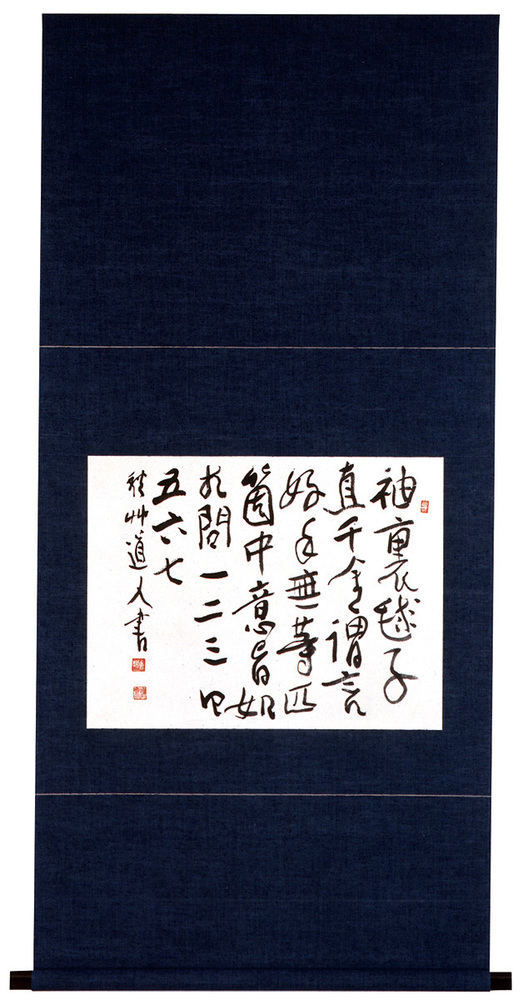 袖裏毬子
直千金謂言
好手無等匹
箇中意旨如
相問一二三四
五六七
秋艸道人書